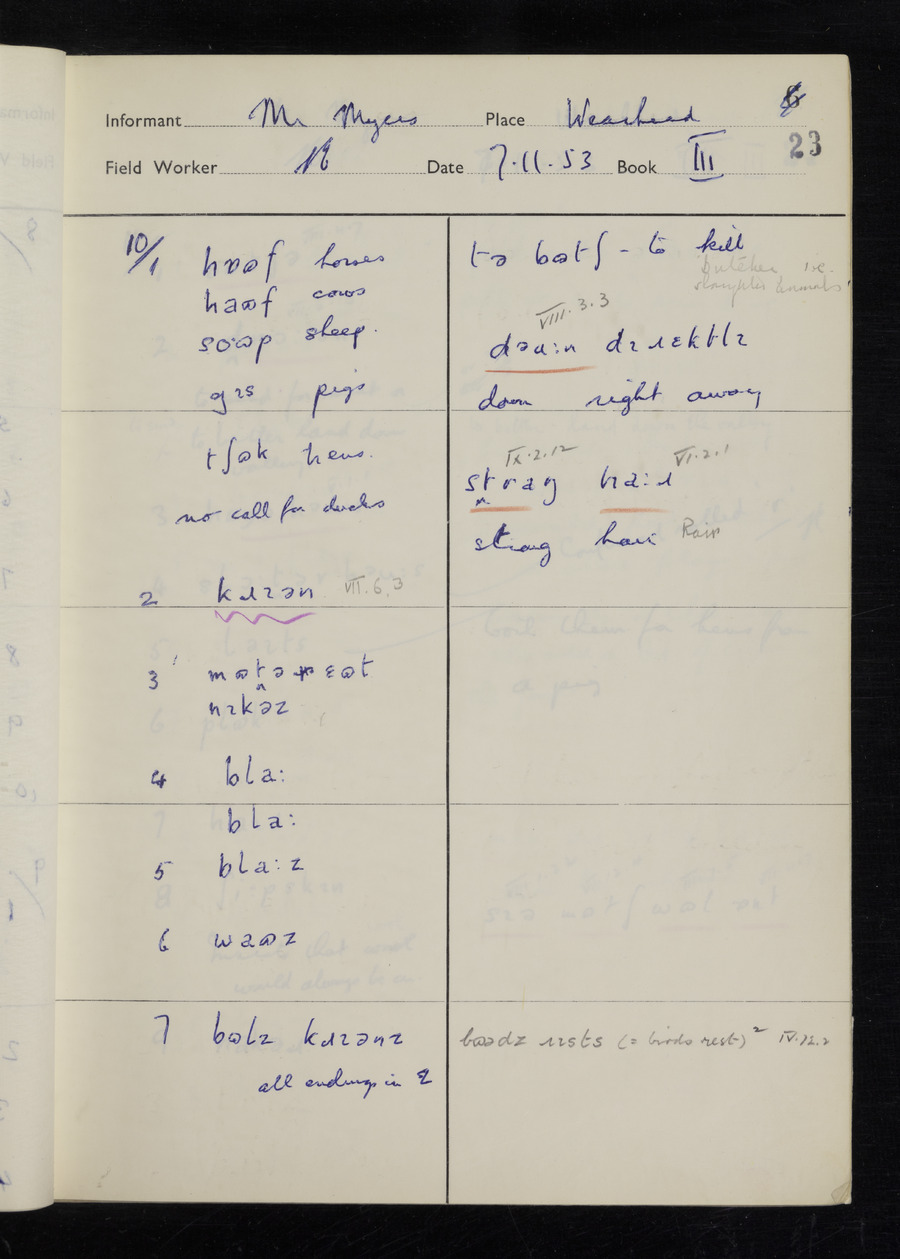 Informant Mr Myers Place Wearhead 6
Field Worker Date 7.11.53 Book III 23
10/1 hɒəf horses
haʊf cows
sheep.
gɪs pigs
tʃʊk hens.
no call for ducks
2 kɹɪən VII.6.3
3
nɪkəz
4 bla:
bla:
5 bla:z
6 waʊz
7 kɹɪənz
all endings in z
tə bʊtʃ - to kill
butcher i.e.
slaughter animals
VIII.3.3
dəu:n dɪɹɛktlɪ
down right away
IX.2.12 VI.2.1
straŋ ha:ɹ
strong hair Rain
ɹɪsts (= birds rest)² IV.12.2